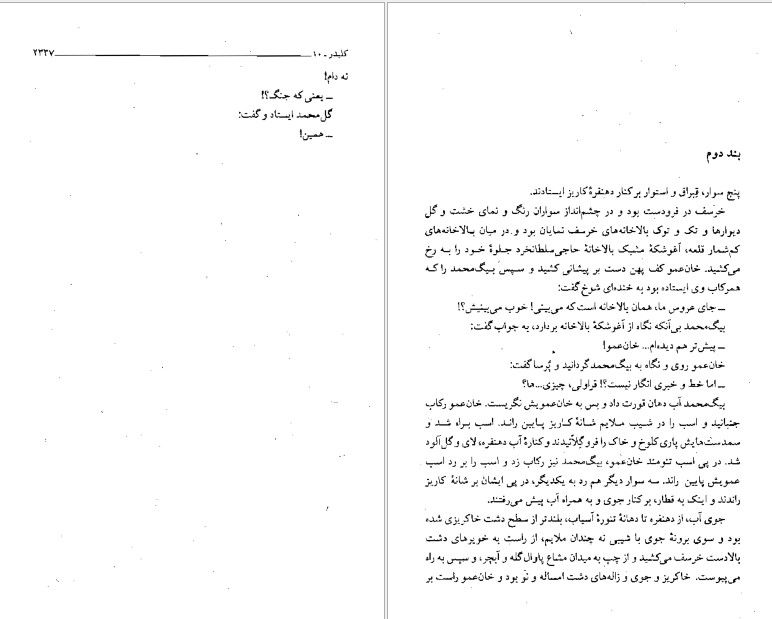 کلیدر ـ ۱۰ ۲۳۳۷
نه دام!
ـ یعنی که جنگ؟!
گل‌محمد ایستاد و گفت:
ـ همین!
بند دوم
پنج سوار، قبراق و استوار بر کنار دهنفرۀ کاریز ایستادند.
خرسف در فرودست بود و در چشم‌انداز سواران رنگ و نمای خشت و گل
دیوارها و تک و توک بالاخانه‌های خرسف نمایان بود و در میان بالاخانه‌های
کم‌شمار قلعه، آغوشکۀ مشبک بالاخانۀ حاجی‌سلطانخرد جلوۀ خود را به رخ
می‌کشید. خان‌عمو کف پهن دست بر پیشانی کشید و سپس بیگ‌محمد را که
همرکاب وی ایستاده بود به خنده‌ای شوخ گفت:
ـ جای عروس ما، همان بالاخانه است که می‌بینی! خوب می‌بینیش؟!
بیگ‌محمد بی‌آنکه نگاه از آغوشکۀ بالاخانه بردارد، به جواب گفت:
ـ پیش‌تر هم دیده‌ام... خان‌عمو!
خان‌عمو روی و نگاه به بیگ‌محمد گردانید و پُرسا گفت:
ـ اما خط و خبری انگار نیست؟! قراولی، چیزی...ها؟
بیگ‌محمد آب دهان قورت داد و بس به خان‌عمویش نگریست. خان‌عمو رکاب
جنبانید و اسب را در شیب ملایم شانۀ کاریز پایین راند. اسب براه شد و
سمدست‌هایش پاری کلوخ و خاک را فرو گلاّنیدند و کنارۀ آب دهنفره، لای و گل‌آلود
شد. در پی اسب تنومند خان‌عمو، بیگ‌محمد نیز رکاب زد و اسب را بر رد اسب
عمویش پایین راند. سه سوار دیگر هم رد به یکدیگر، در پی ایشان بر شانۀ کاریز
راندند و اینک به قطار، بر کنار جوی و به همراه آب پیش می‌رفتند.
جوی آب، از دهنفره تا دهانۀ تنورۀ آسیاب، بلندتر از سطح دشت خاکریزی شده
بود و سوی برونۀ جوی با شیبی نه چندان ملایم، از راست به خویرهای دشت
بالادست خرسف می‌کشید و از چپ به میدان مشاع پاوال گله و آبچر، و سپس به راه
می‌پیوست. خاکریز و جوی و زاله‌های دشت امساله و نو بود و خان‌عمو راست بر